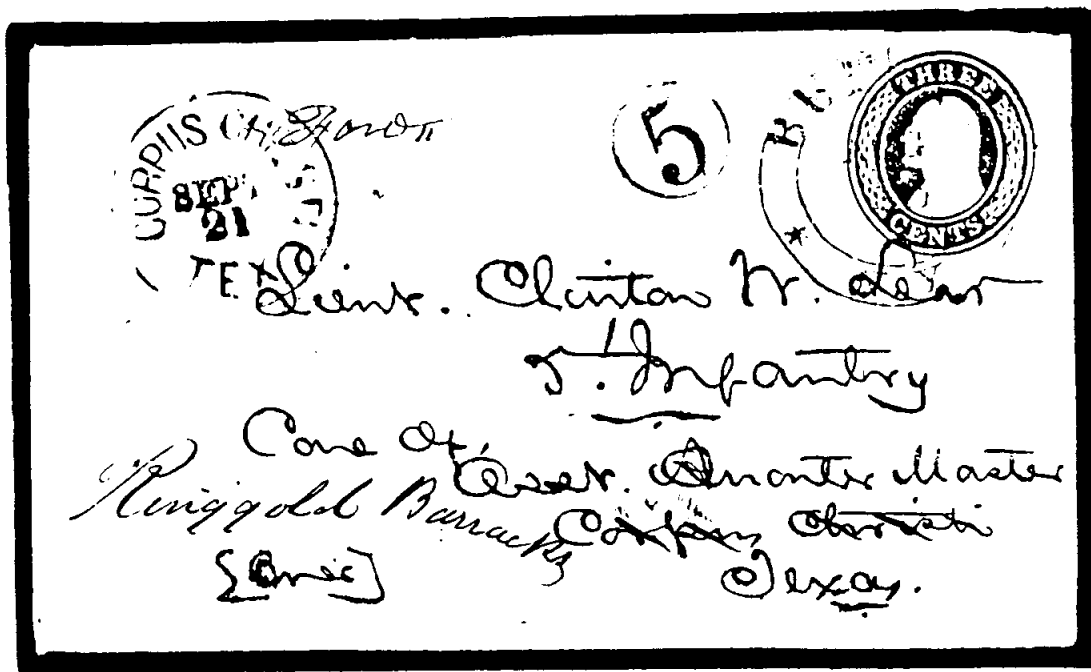 CORPUS CHRISTI
SEP
21
TEX
Forwd
5
THREE
CENTS
Lieut. Clinton W. Lear
5t. Infantry
Care of,
Asst. Quarter Master
Ringgold Barracks
Corpus Christi
Texas.